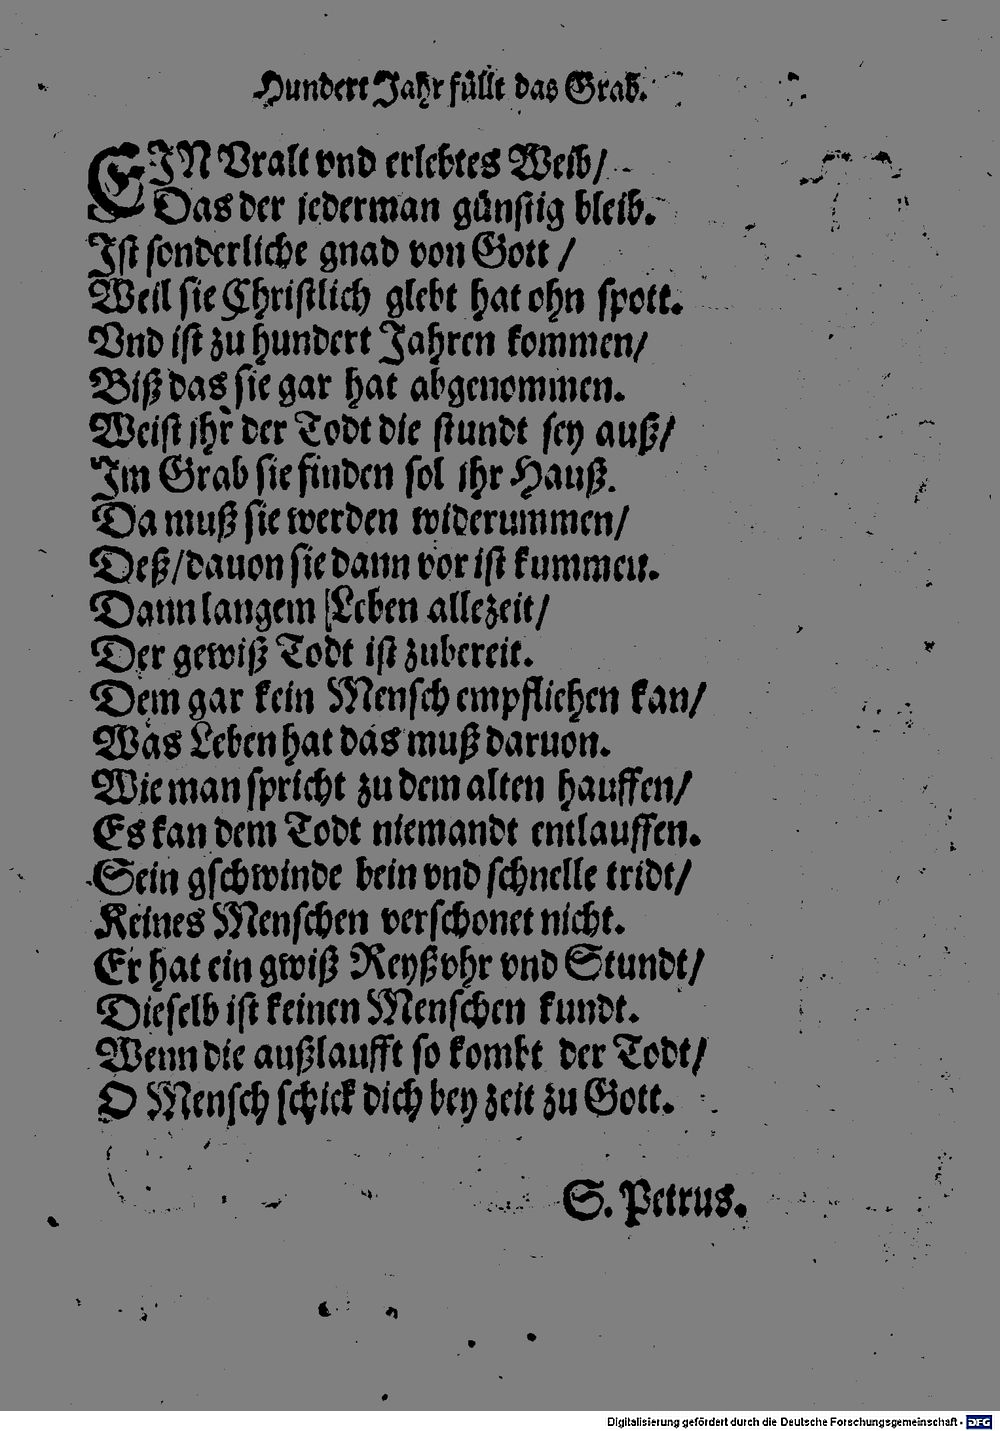 Hundert Jahr füllt das Grab.
EIN Vralt vnd erlebtes Weib/
Das der jederman günstig bleib.
Ist sonderliche gnad von Gott /
Weil sie Christlich glebt hat ohn spott.
Vnd ist zu hundert Jahren kommen/
Biß das sie gar hat abgenommen.
Weist jhr der Todt die stundt sey auß/
Im Grab sie finden sol jhr Hauß.
Da muß sie werden widerummen/
Deß/dauon sie dann vor ist kummen.
Dann langem Leben allezeit/
Der gewiß Todt ist zubereit.
Dem gar kein Mensch empfliehen kan/
Was Leben hat das muß daruon.
Wie man spricht zu dem alten hauffen/
Es kan dem Todt niemandt entlauffen.
Sein gschwinde bein vnd schnelle tridt/
Keines Menschen verschonet nicht.
Er hat ein gwiß Reyßvhr vnd Stundt/
Dieselb ist keinen Menschen kundt.
Wenn die außlaufft so kombt der Todt/
O Mensch schick dich bey zeit zu Gott.
S. Petrus.
Digitalisierung gefördert durch die Deutsche Forschungsgemeinschaft - DFG